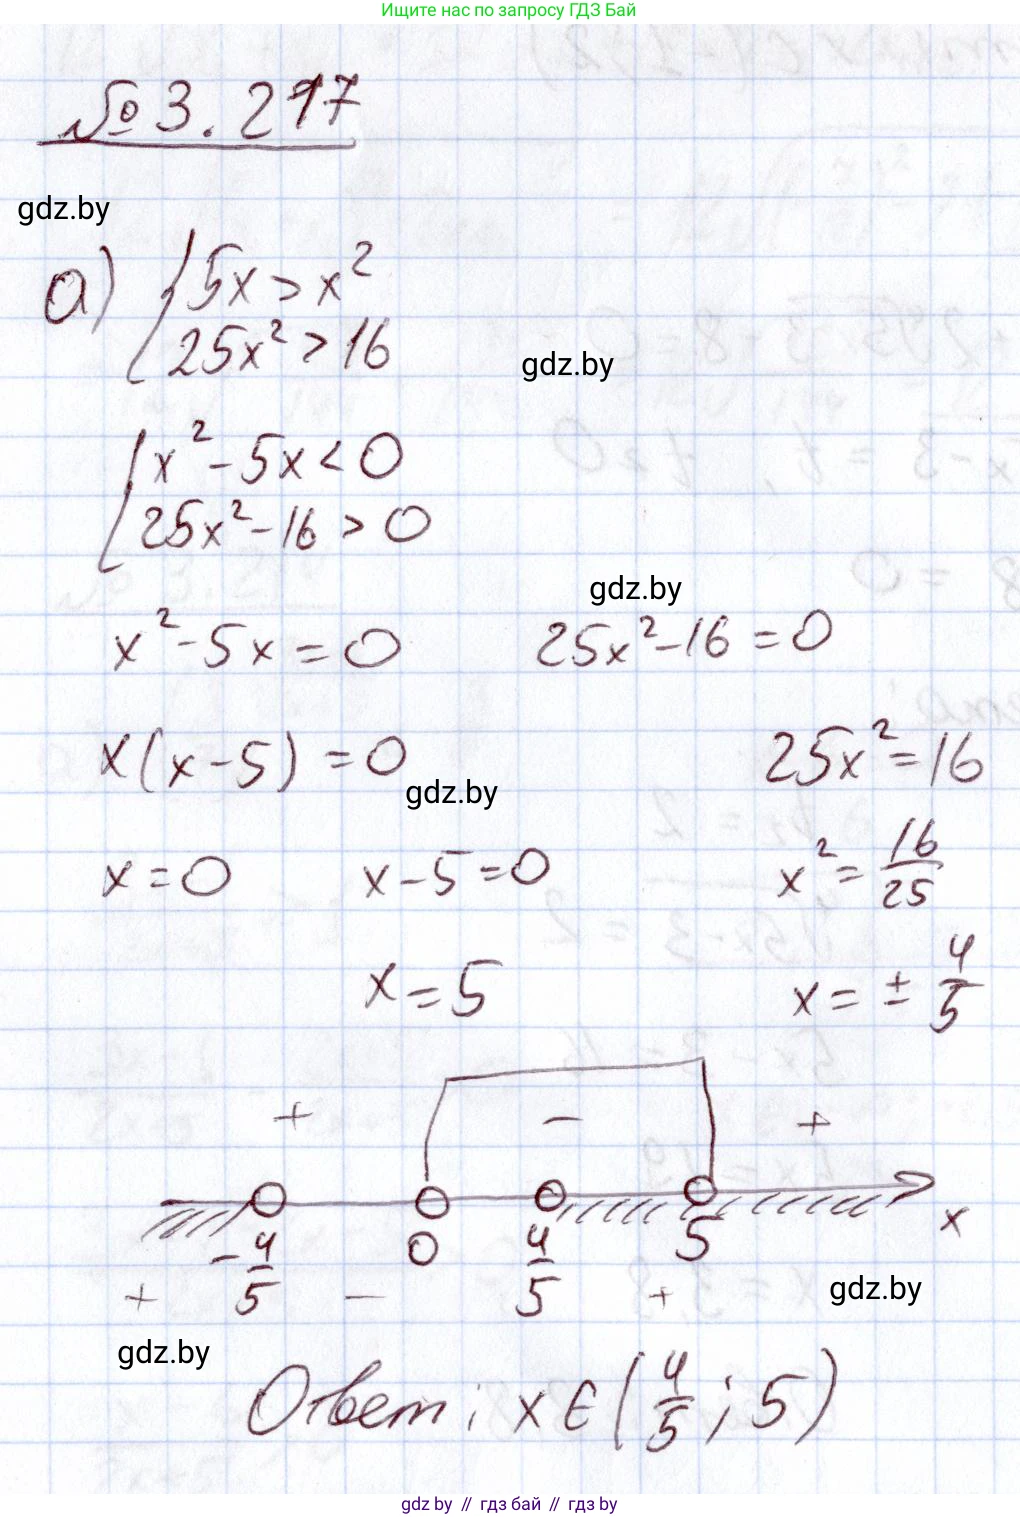 Ищите нас по запросу ГДЗ Бай
№ 3.217
gdz.by
а) { 5x > x²
25x² > 16
gdz.by
{ x² - 5x < 0
25x² - 16 > 0
gdz.by
x² - 5x = 0 25x² - 16 = 0
x(x - 5) = 0 25x² = 16
gdz.by
x = 0 x - 5 = 0 x² = 16/25
x = 5 x = ± 4/5
+ - +
-4/5 0 4/5 5 x
+ - +
gdz.by
gdz.by
Ответ: x ∈ (4/5; 5)
gdz by // гдз бай // gdz by